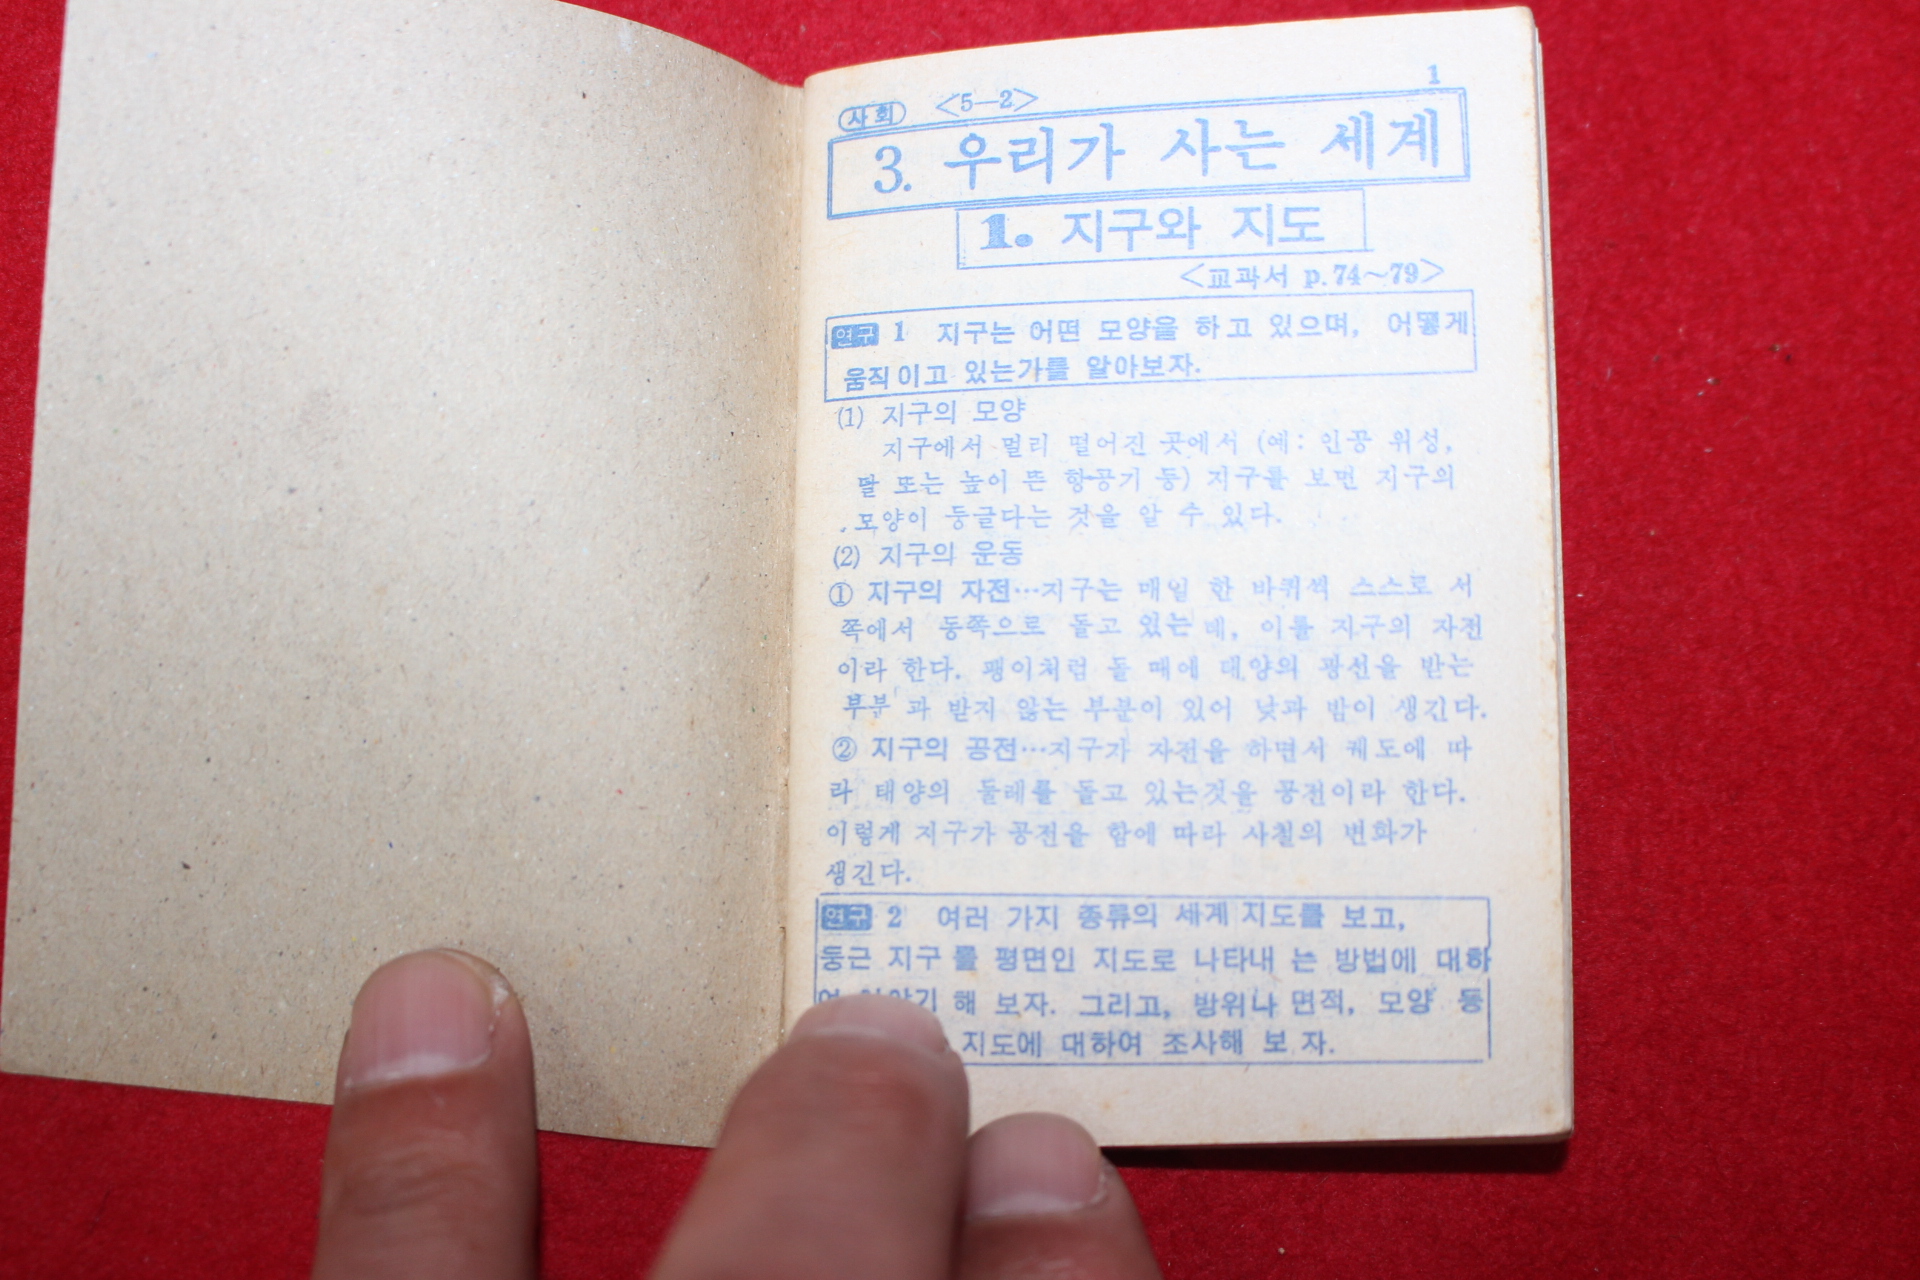 1
사회 <5—2>
3. 우리가 사는 세계
1. 지구와 지도
<교과서 p.74~79>
연구 1 지구는 어떤 모양을 하고 있으며, 어떻게
움직이고 있는가를 알아보자.
(1) 지구의 모양
지구에서 멀리 떨어진 곳에서 (예: 인공 위성,
달 또는 높이 뜬 항공기 등) 지구를 보면 지구의
모양이 둥글다는 것을 알 수 있다.
(2) 지구의 운동
① 지구의 자전…지구는 매일 한 바퀴씩 스스로 서
쪽에서 동쪽으로 돌고 있는데, 이를 지구의 자전
이라 한다. 팽이처럼 돌 때에 태양의 광선을 받는
부분과 받지 않는 부분이 있어 낮과 밤이 생긴다.
② 지구의 공전…지구가 자전을 하면서 궤도에 따
라 태양의 둘레를 돌고 있는것을 공전이라 한다.
이렇게 지구가 공전을 함에 따라 사철의 변화가
생긴다.
연구 2 여러 가지 종류의 세계 지도를 보고,
둥근 지구를 평면인 지도로 나타내는 방법에 대하
해 보자. 그리고, 방위나 면적, 모양 등
지도에 대하여 조사해 보자.